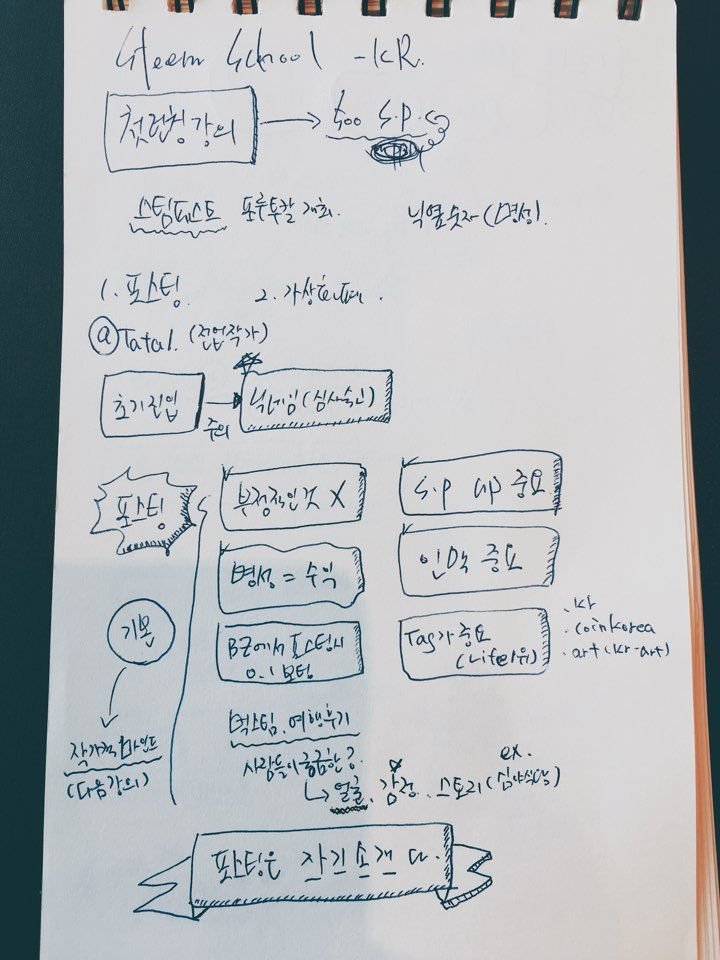 Steem School - KR.
첫런칭강의 → 500 S.P.
스팀페스트 포루투칼 개최. 닉옆숫자(명성).
1. 포스팅. 2. 가상화폐.
@Tata1. (전업작가)
초기진입 → 닉네임(심사숙고)
주의
포스팅
부정적인것 X
S.P up 중요
명성 = 수익
인맥 중요
기본
BZ에서 포스팅시
0.1 보팅
Tag가 중요
(Life하위)
.kr
.coinkorea
.art(kr-art)
먹스팀. 여행후기
작가적 마인드
(다음강의)
사람들이 궁금한?
ex.
↳ 얼굴. 감정. 스토리(심야식당)
포스팅은 자기소개 다.